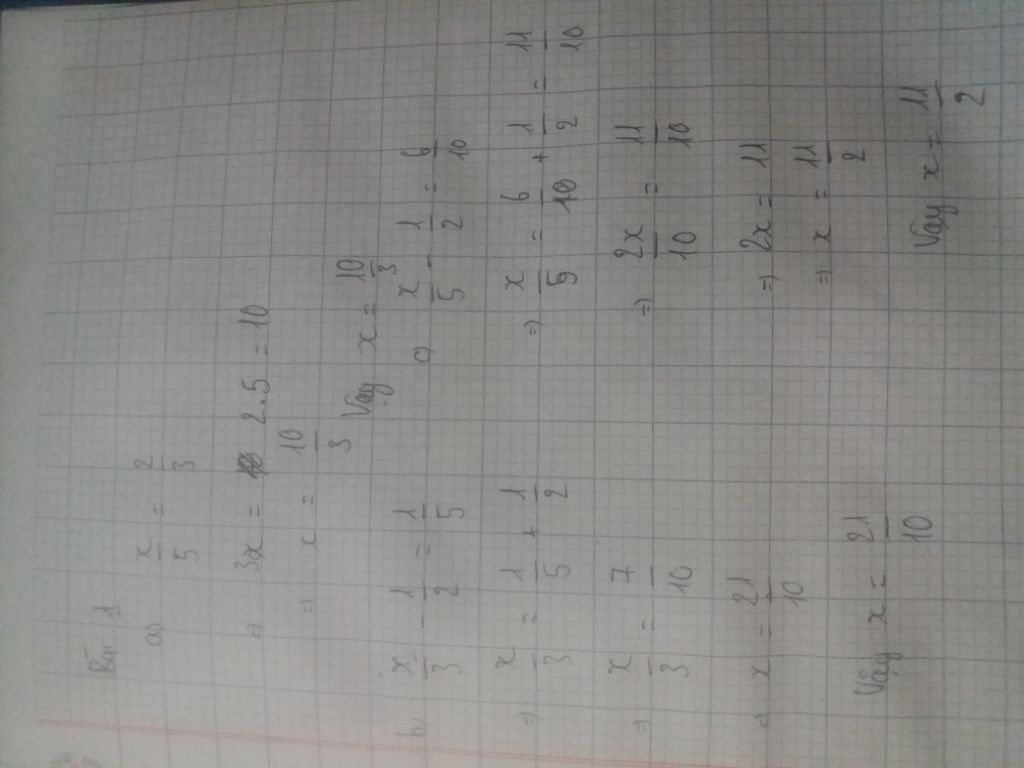 Bài 1
a) x/5 = 2/3
=> 3x = 2.5 = 10
=> x = 10/3
Vậy x = 10/3
b, x/3 - 1/2 = 1/5
=> x/3 = 1/5 + 1/2
=> x/3 = 7/10
=> x = 21/10
Vậy x = 21/10
c) x/5 - 1/2 = 6/10
=> x/5 = 6/10 + 1/2 = 11/10
=> 2x/10 = 11/10
=> 2x = 11
=> x = 11/2
Vậy x = 11/2